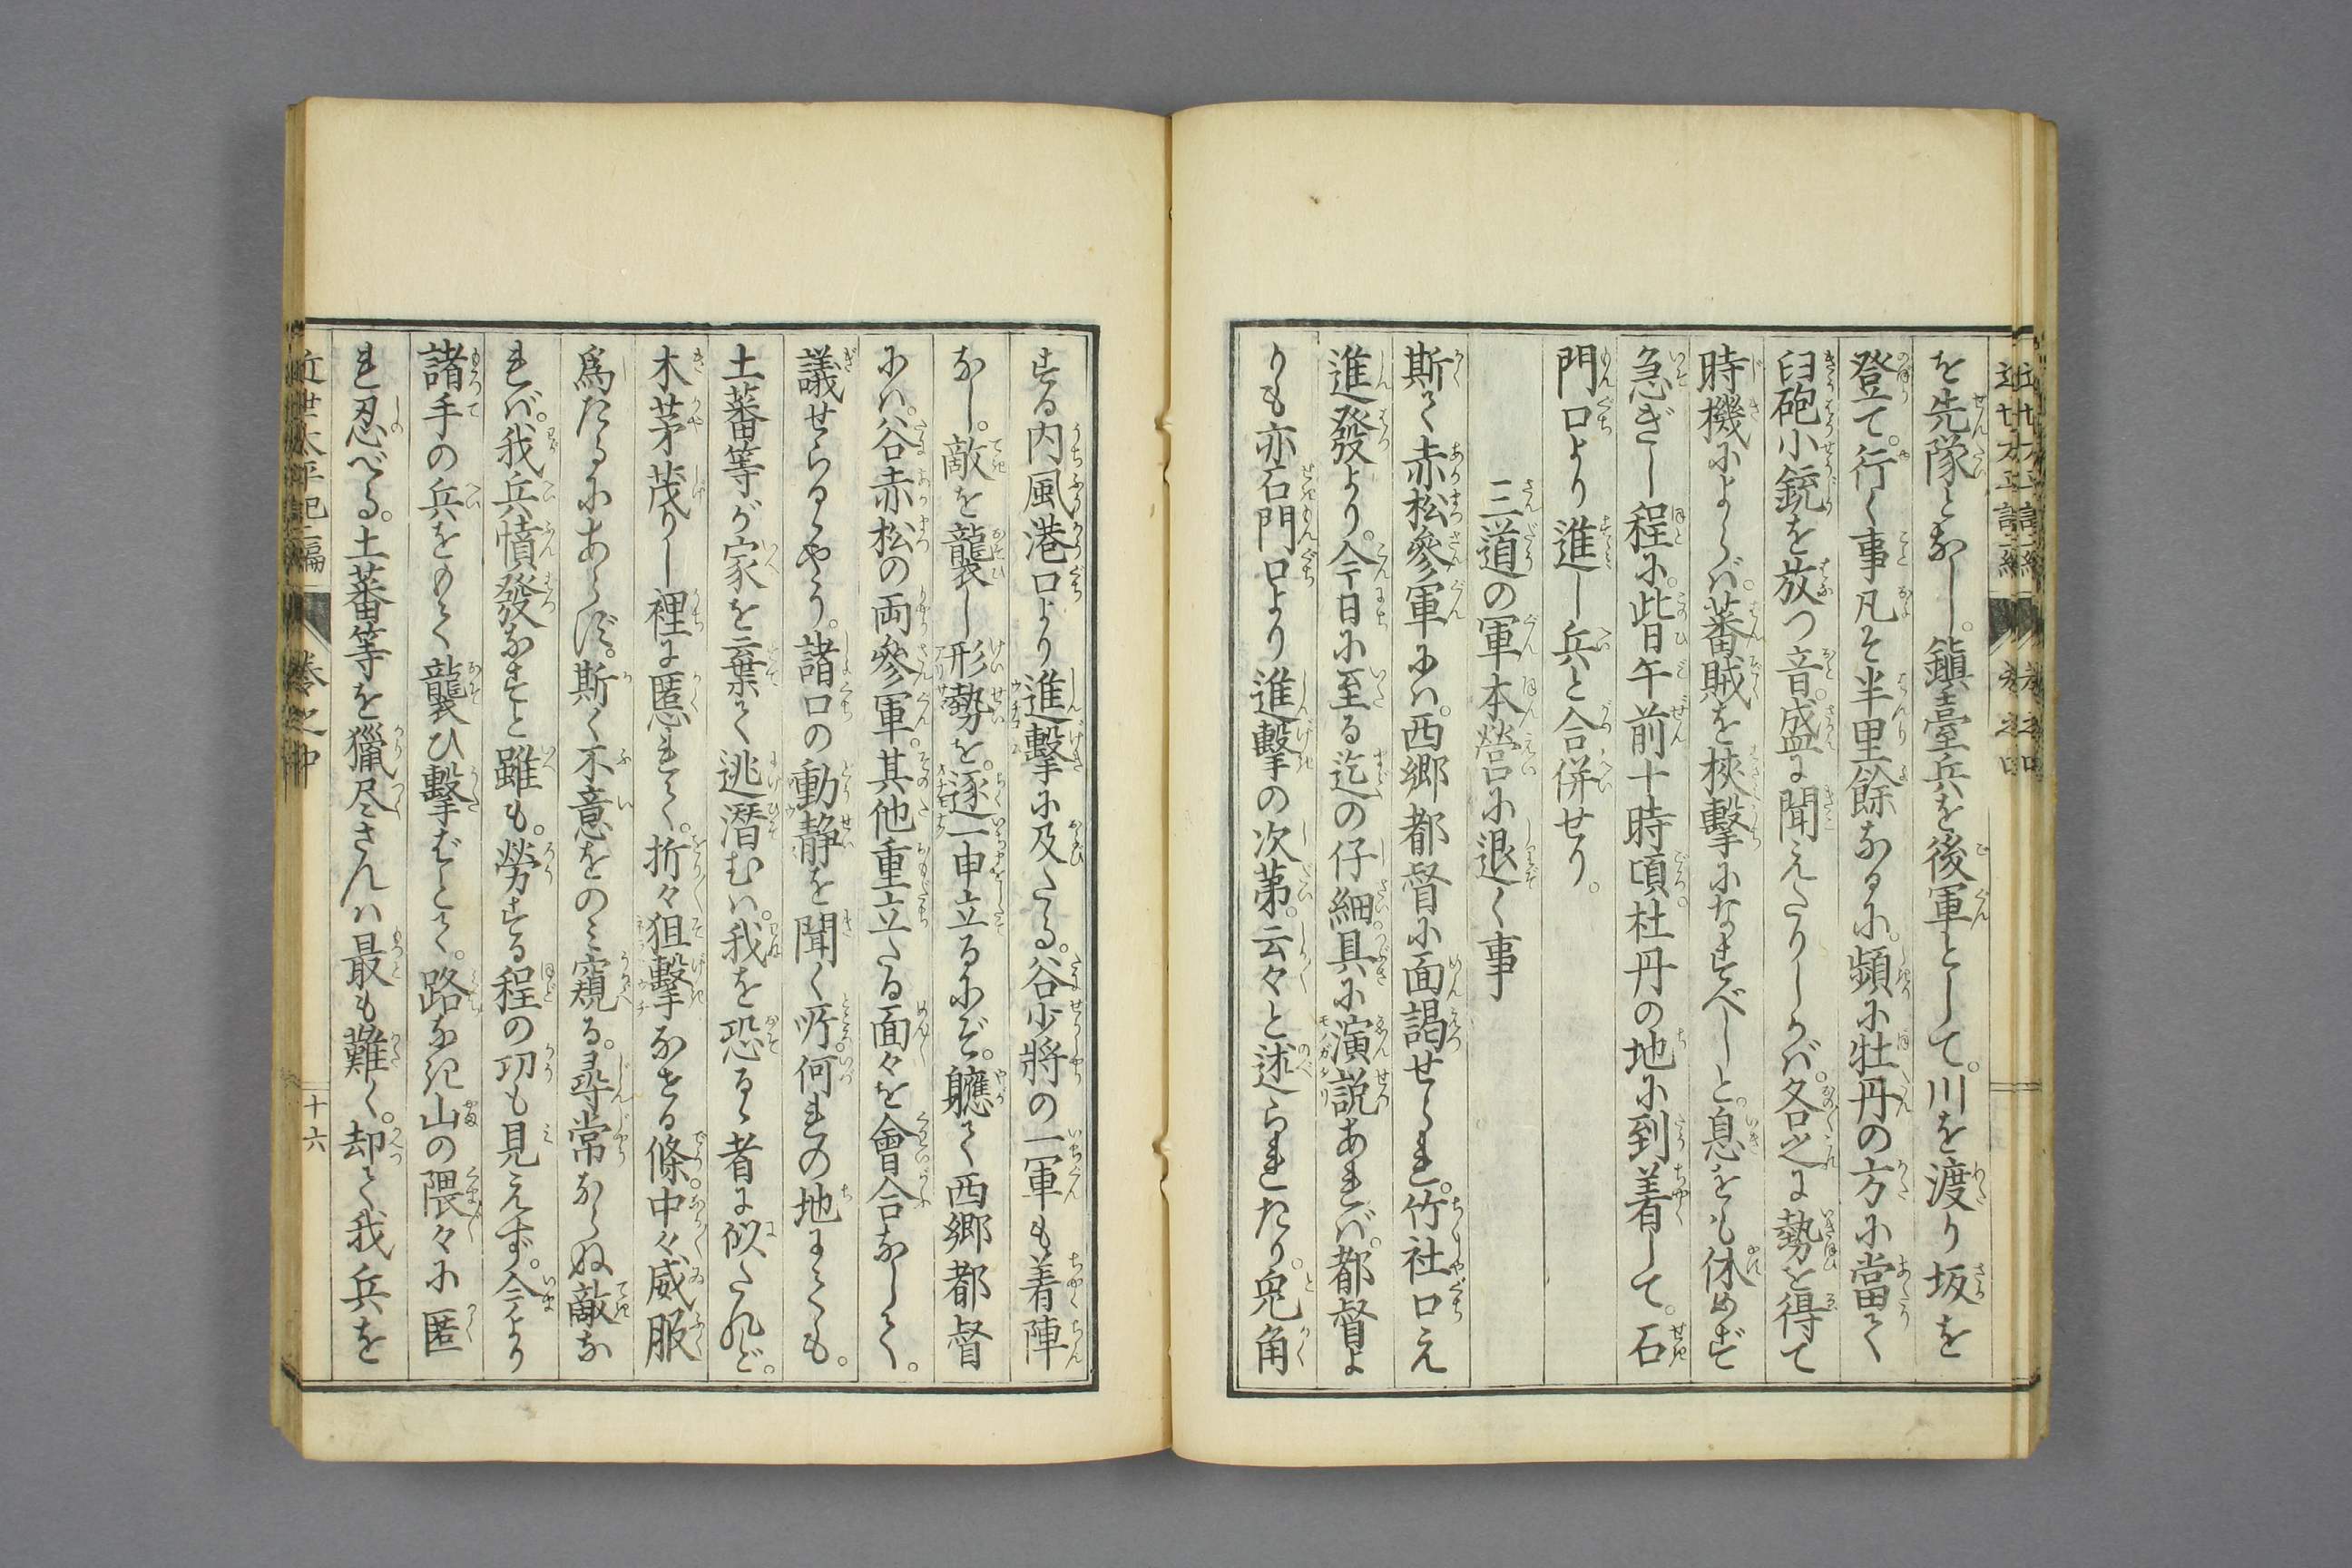 を先隊となし。鎮臺兵を後軍として。川を渡り坂を
登て。行く事凡そ半里餘なるに。頻に牡丹の方に當て
臼砲小銃を放つ音。盛に聞えたりしかば。各之に勢を得て
時機によらば。蕃賊を挾擊になすべしと。息をも休めず
急ぎし程に。此日午前十時頃。牡丹の地に到着して。石
門口より進し兵と合併せり。
三道の軍本營に退く事
斯て赤松參軍にハ。西郷都督に面謁せられ。竹社口え
進發より。今日に至る迄の仔細。具に演説あれバ。都督よ
りも亦石門口より進擊の次第。云々と述られたり。兎角
する内風港口より進擊に及たる。谷少將の一軍も着陣
なし。敵を襲し形勢を。逐一申立るにぞ。軈て西郷都督
にハ。谷赤松の両參軍。其他重立たる面々を會合なして。
議せらるゝやう。諸口の動静を聞く所。何れの地にても。
土蕃等が家を棄て逃潜むハ。我を恐るゝ者に似たれど。
木茅茂りし裡に匿れて。折々狙擊なせる條。中々威服
爲たるにあらず。斯く不意をのミ窺る。尋常ならぬ敵な
れバ。我兵憤發なすと雖も。勞する程の功も見えず。今より
諸手の兵をもて襲ひ擊ばとて。路なき山の隈々に匿
れ忍べる。土蕃等を獵尽さんハ最も難く。却て我兵を
近世太平記二編
卷之中
十六